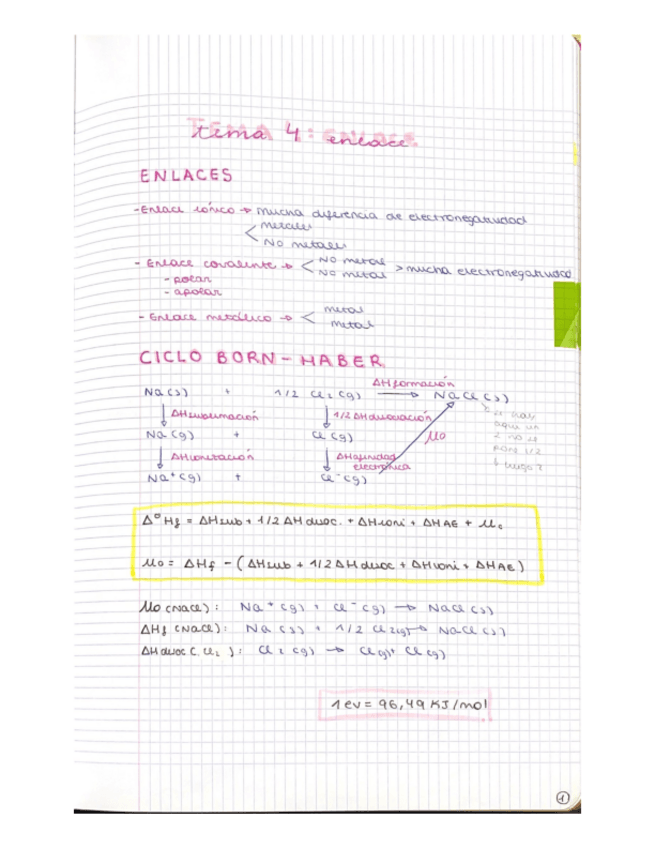 tema 4: enlace
ENLACES
- Enlace iónico → mucha diferencia de electronegatividad
< metales
No metales
- Enlace covalente → < No metal
No metal > mucha electronegatividad
- polar
- apolar
- Enlace metálico → < metal
metal
CICLO BORN-HABER
Na(s) + 1/2 Cl2 (g) ΔHformación → NaCl (s)
↓ ΔHsublimación ↓ 1/2 ΔHdisociación
Na (g) + Cl (g) Mo
↓ ΔHionización ↓ ΔHafinidad electrónica
Na+ (g) + Cl- (g)
aquí un
2 no se
pone 1/2
Δ°Hf = ΔHsub + 1/2 ΔHdisoc. + ΔHioni + ΔHAE + Mo
Mo = ΔHf - (ΔHsub + 1/2 ΔHdisoc + ΔHioni + ΔHAE)
Mo (NaCl): Na+ (g) + Cl- (g) → NaCl (s)
ΔHf (NaCl): Na (s) + 1/2 Cl2(g) → NaCl (s)
ΔHdisoc (Cl2): Cl2 (g) → Cl(g) + Cl(g)
1ev = 96,49 KJ/mol
1